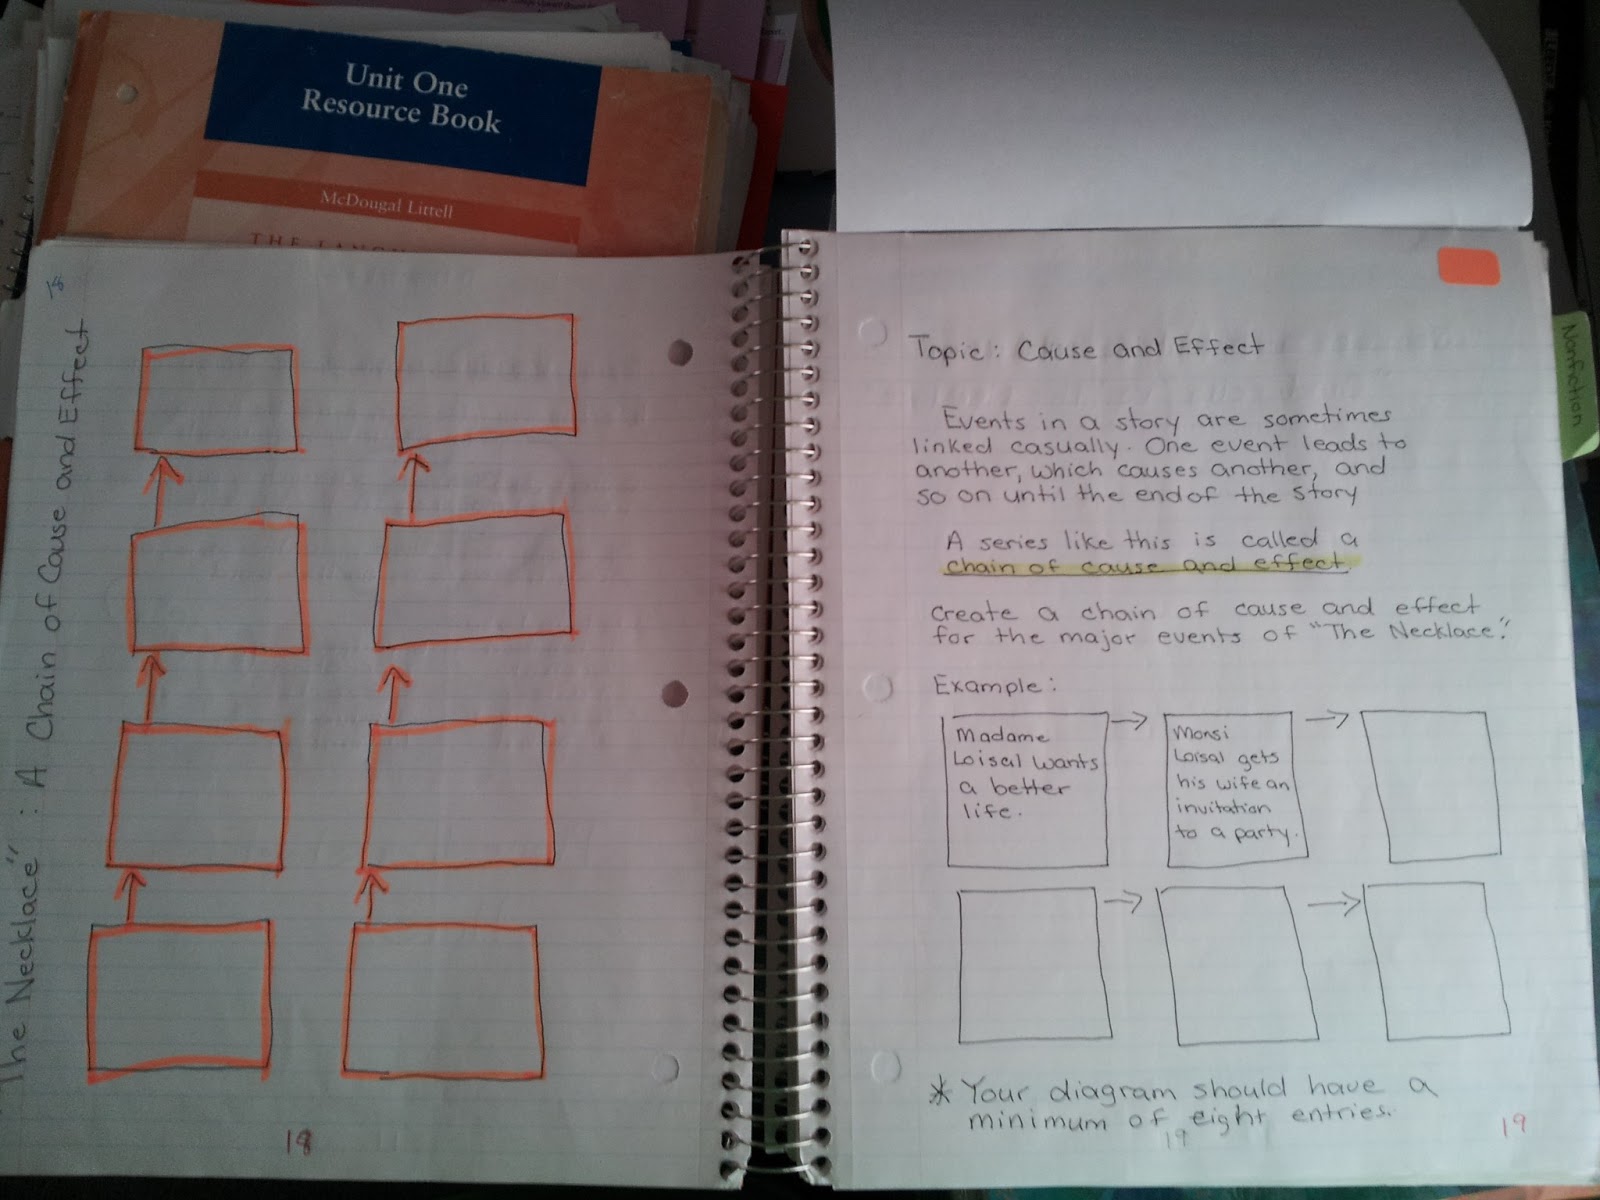 Unit One
Resource Book
McDougal Littell
18
"The Necklace" : A Chain of Cause and Effect
18
Nonfiction
Topic: Cause and Effect
Events in a story are sometimes
linked casually. One event leads to
another, which causes another, and
so on until the end of the story
A series like this is called a
chain of cause and effect.
Create a chain of cause and effect
for the major events of "The Necklace."
Example:
Madame
Loisal wants
a better
life.
Monsi
Loisal gets
his wife an
invitation
to a party.
* Your diagram should have a
minimum of eight entries.
19
19